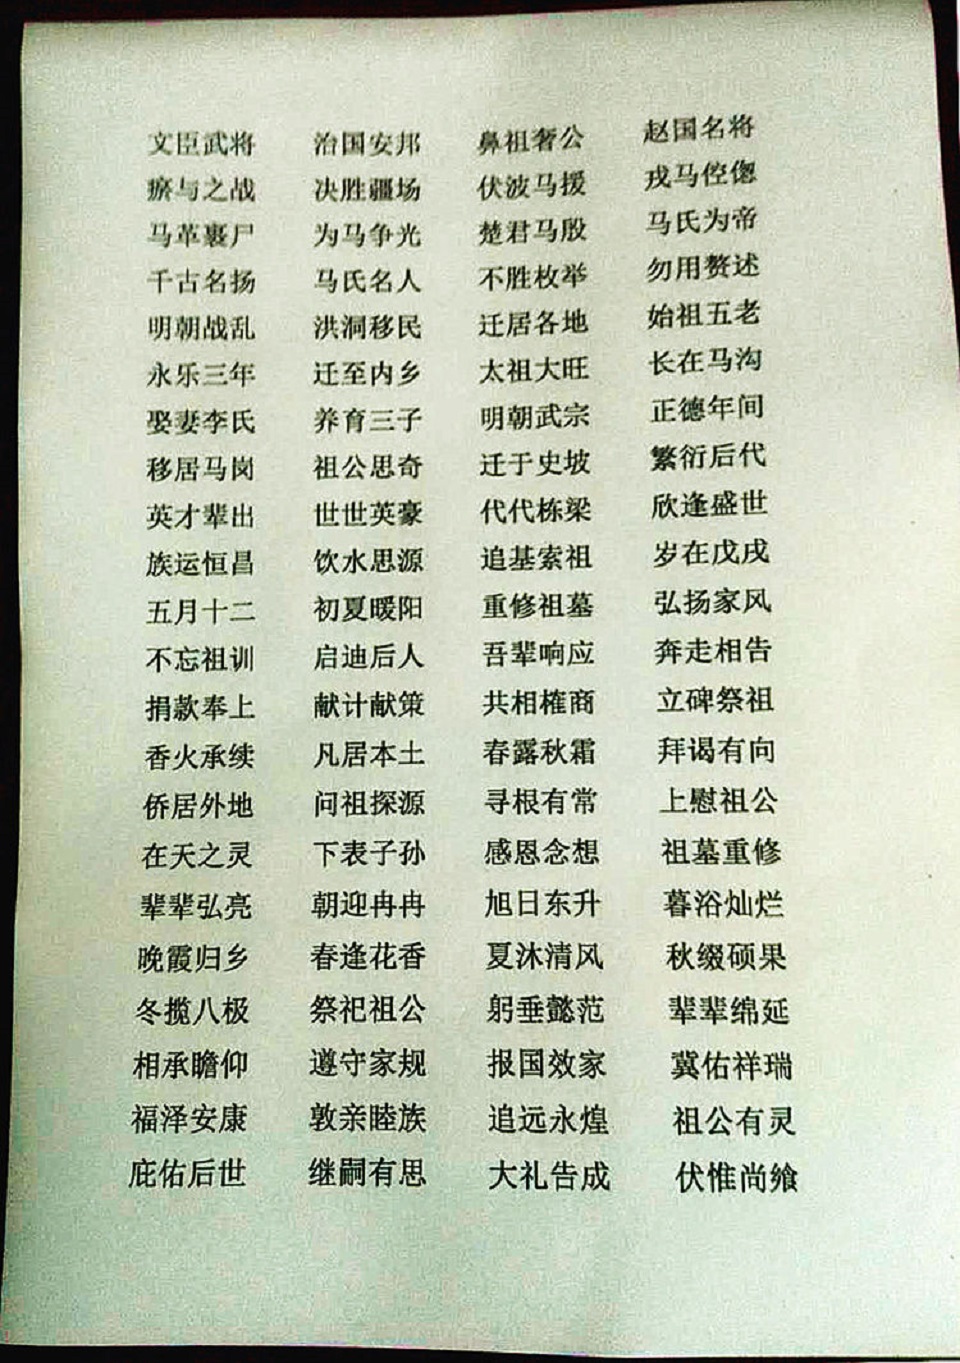 文臣武将 治国安邦 鼻祖奢公 赵国名将
瘀与之战 决胜疆场 伏波马援 戎马倥偬
马革裹尸 为马争光 楚君马殷 马氏为帝
千古名扬 马氏名人 不胜枚举 勿用赘述
明朝战乱 洪洞移民 迁居各地 始祖五老
永乐三年 迁至内乡 太祖大旺 长在马沟
娶妻李氏 养育三子 明朝武宗 正德年间
移居马岗 祖公思奇 迁于史坡 繁衍后代
英才辈出 世世英豪 代代栋梁 欣逢盛世
族运恒昌 饮水思源 追基索祖 岁在戊戌
五月十二 初夏暖阳 重修祖墓 弘扬家风
不忘祖训 启迪后人 吾辈响应 奔走相告
捐款奉上 献计献策 共相榷商 立碑祭祖
香火承续 凡居本土 春露秋霜 拜谒有向
侨居外地 问祖探源 寻根有常 上慰祖公
在天之灵 下表子孙 感恩念想 祖墓重修
辈辈弘亮 朝迎冉冉 旭日东升 暮浴灿烂
晚霞归乡 春逢花香 夏沐清风 秋缀硕果
冬揽八极 祭祀祖公 躬垂懿范 辈辈绵延
相承瞻仰 遵守家规 报国效家 冀佑祥瑞
福泽安康 敦亲睦族 追远永煌 祖公有灵
庇佑后世 继嗣有思 大礼告成 伏惟尚飨